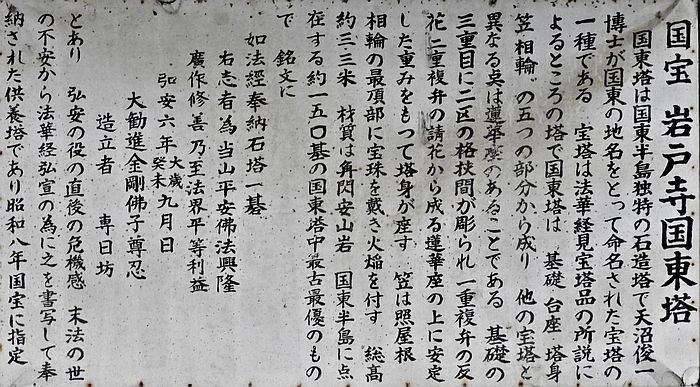 国宝 岩戸寺国東塔
国東塔は国東半島独特の石造塔で天沼俊一
博士が国東の地名をとって命名された宝塔の
一種である 宝塔は法華経見宝塔品の所説に
よるところの塔で国東塔は 基礎 台座 塔身
笠 相輪〟の五つの部分から成り 他の宝塔と
異なる点は蓮華座のあることである 基礎の
三重目に二区の格狭間が彫られ 一重複弁の反
花 二重複弁の請花から成る蓮華座の上に安定
した重みをもって塔身が座す 笠は照屋根
相輪の最頂部に宝珠を戴き火焔を付す 総高
約三.三米 材質は角閃安山岩 国東半島に点
在する約一五〇基の国東塔中最古最優のもの
で 銘文に
如法經奉納石塔一基
右志者為当山平安佛法興隆
廣作修善乃至法界平等利益
弘安六年大歳癸未九月日
大勧進金剛佛子尊忍
造立者 専日坊
とあり 弘安の役の直後の危機感 末法の世
の不安から法華経弘宣の為に之を書写して奉
納された供養塔であり昭和八年国宝に指定